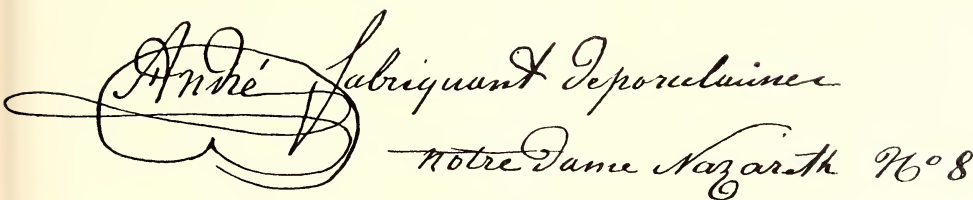 André fabriquant De porcelainne
notre Dame Nazareth No 8